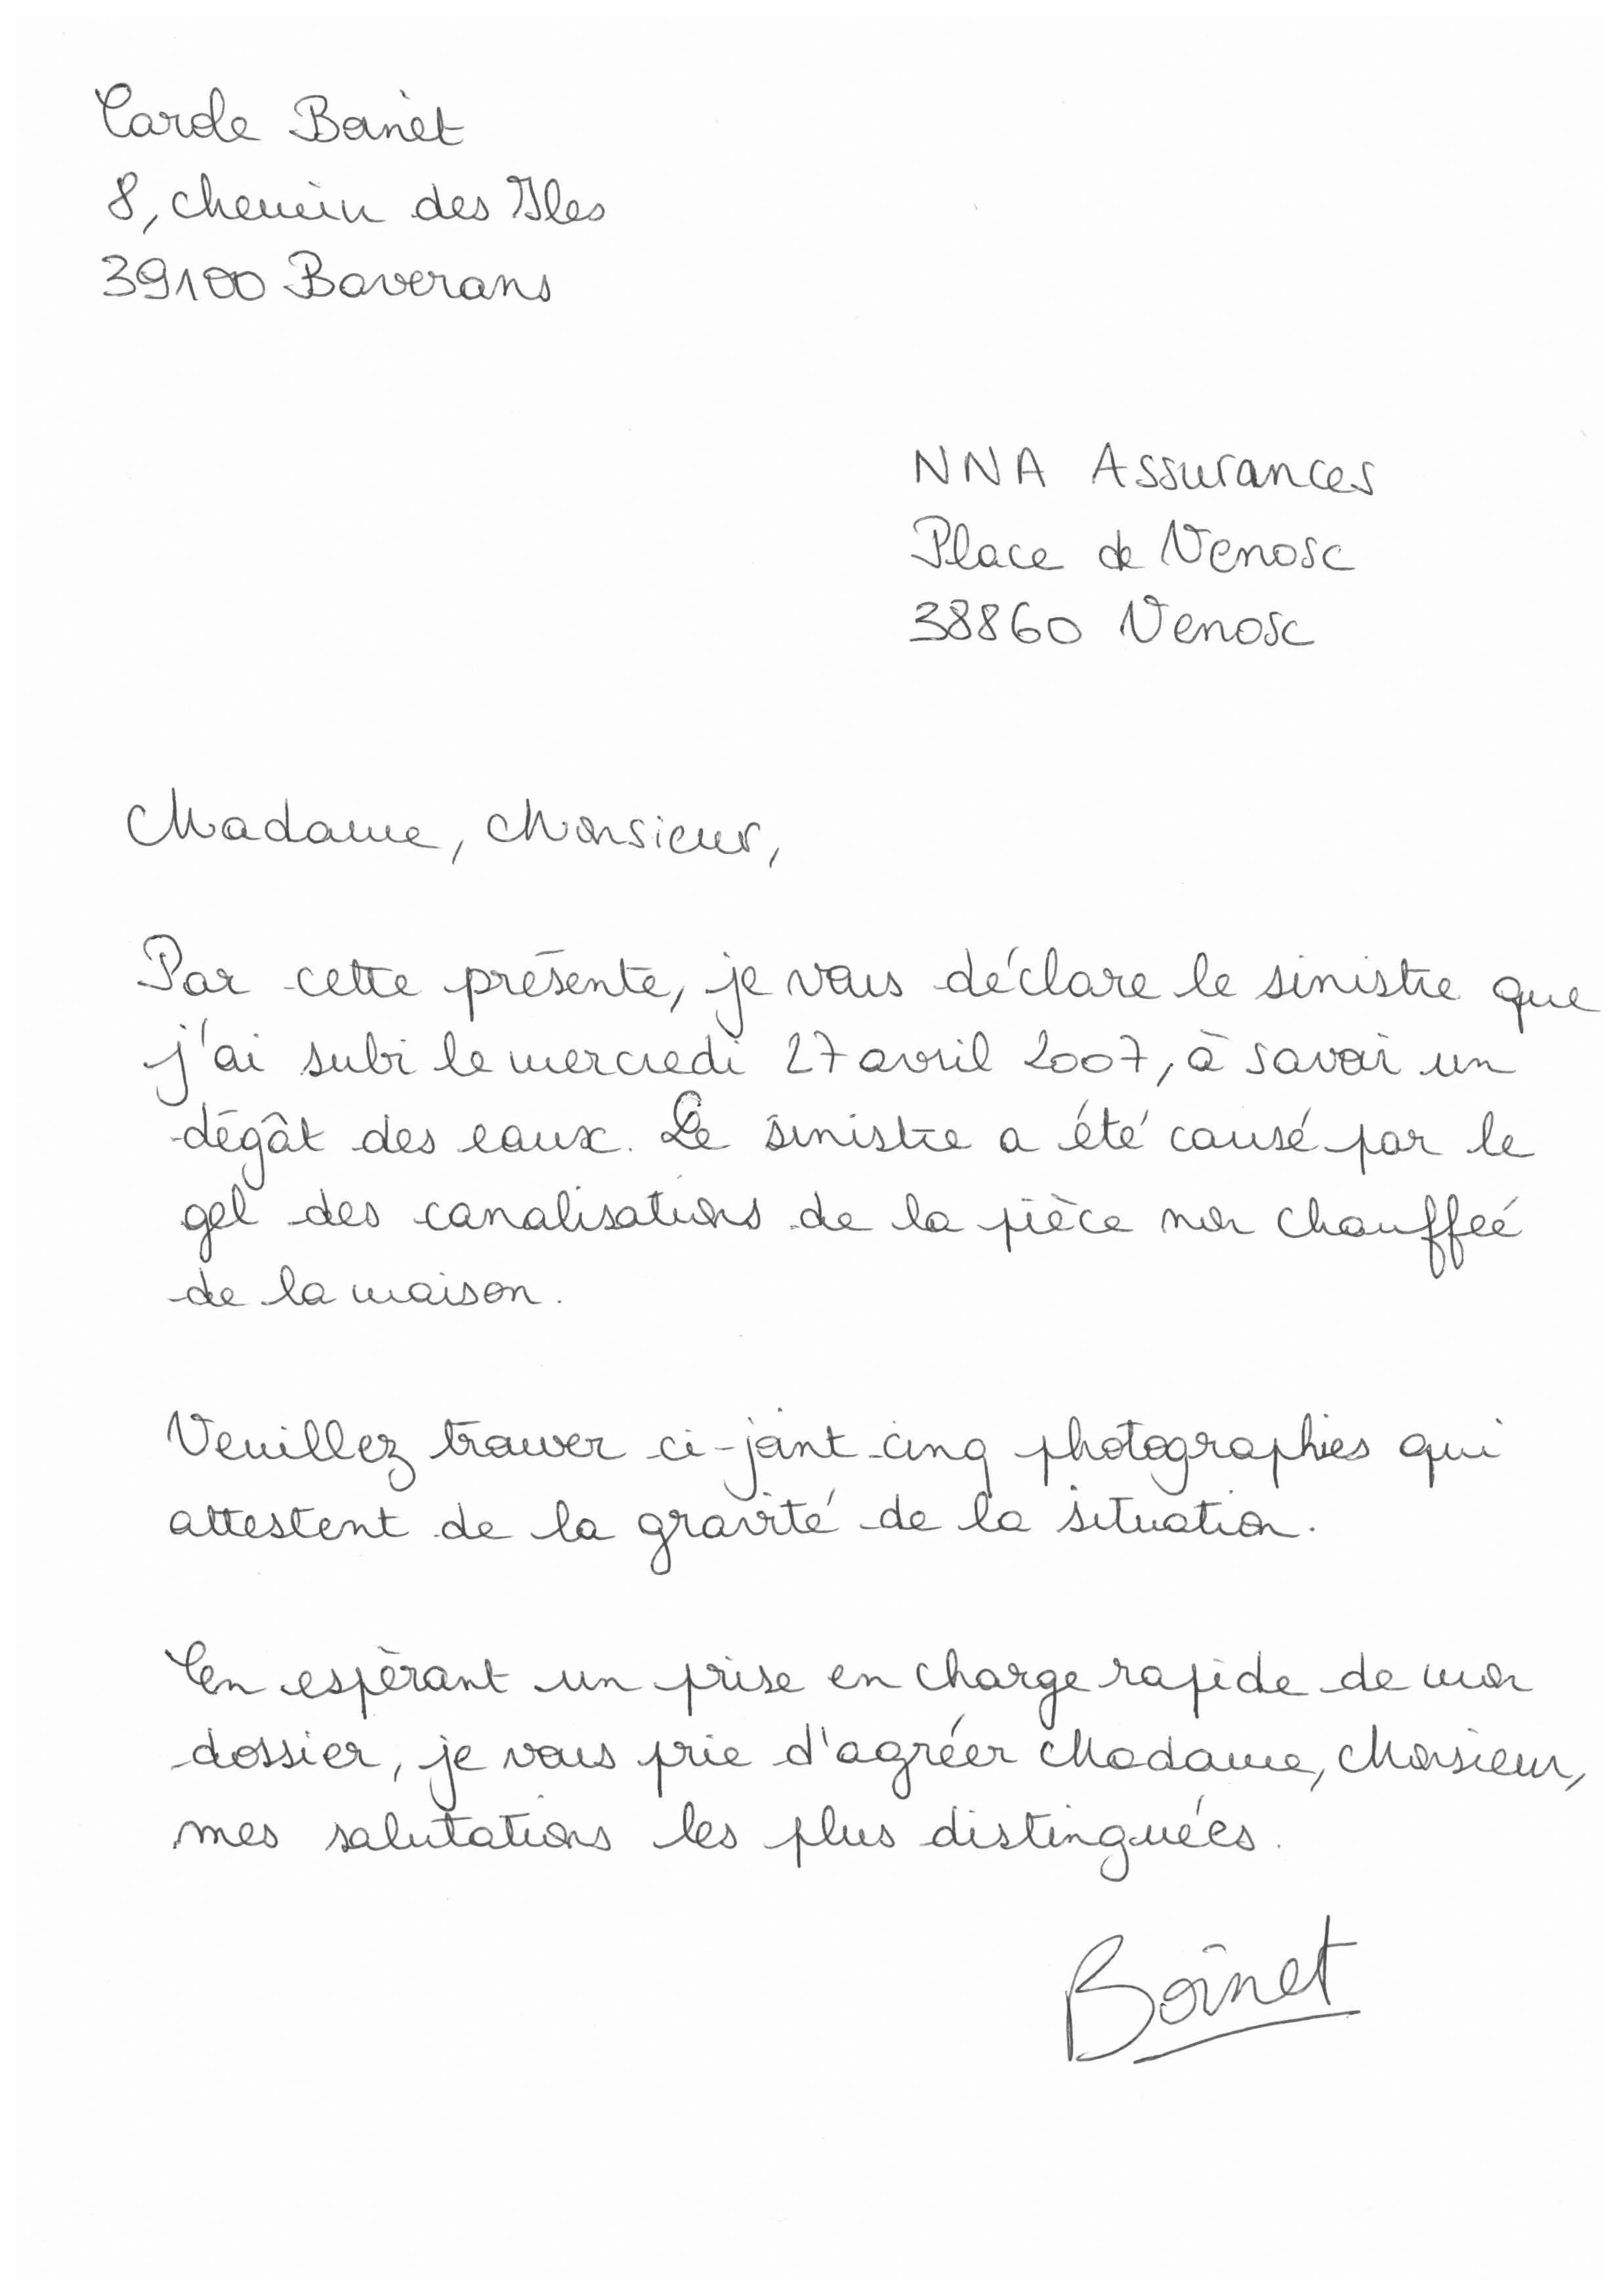 Carole Boinet
8, chemin des Iles
39100 Baverans
NNA Assurances
Place de Venosc
38860 Venosc
Madame, Monsieur,
Par cette présente, je vous déclare le sinistre que
j'ai subi le mercredi 27 avril 2007, à savoir un
dégât des eaux. Le sinistre a été causé par le
gel des canalisations de la pièce non chauffeé
de la maison.
Veuillez trouver ci-joint cinq photographies qui
attestent de la gravité de la situation.
En espérant un prise en charge rapide de mon
dossier, je vous prie d'agréer Madame, Monsieur,
mes salutations les plus distinguées.
Boinet